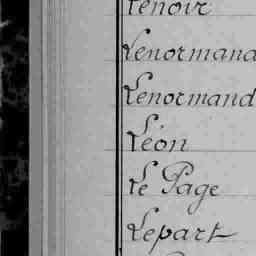 Lenoir
Lenormand
Lenormand
Léon
Le Page
Lepart